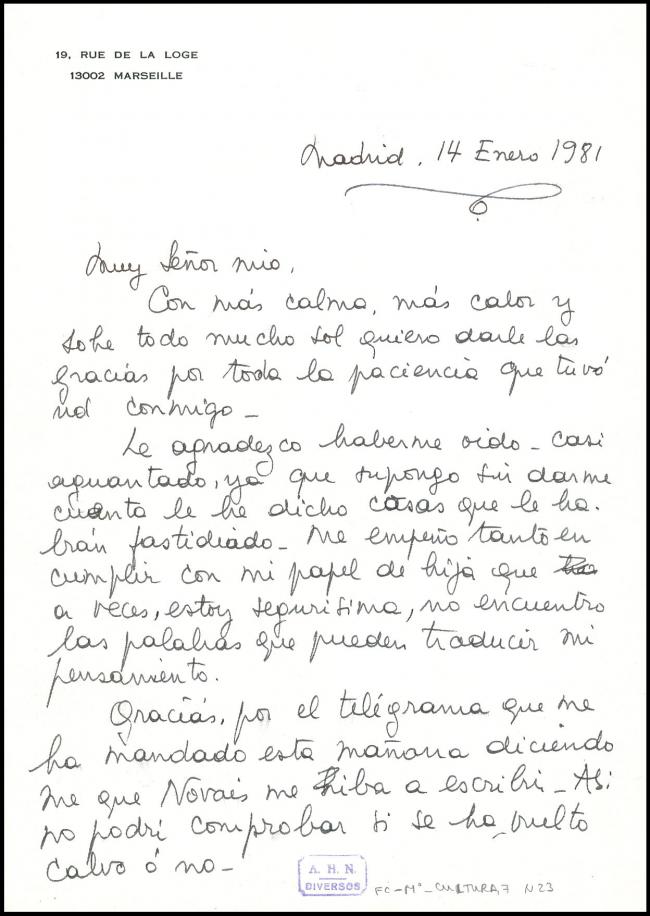 19, RUE DE LA LOGE
13002 MARSEILLE
Madrid, 14 Enero 1981
Muy Señor mio,
Con más calma, más calor y
sobe todo mucho sol quiero darle las
gracias por toda la paciencia que tuvó
ud conmigo -
Le agradezco haberme oido - casi
aguantado, ya que supongo sin darme
cuenta le he dicho cosas que le ha.
brán fastidiado - Me empeño tanto en
cumplir con mi papel de hija que
a veces, estoy segurisima, no encuentro
las palabras que pueden traducir mi
pensamiento.
Graciás, por el telégrama que me
ha mandado esta mañana diciendo
me que Novais me iba a escribri - Asi
no podri comprobar si se ha vuelto
calvo ó no -
A. H. N.
DIVERSOS
FC-Mº-CULTURA 7 N.23